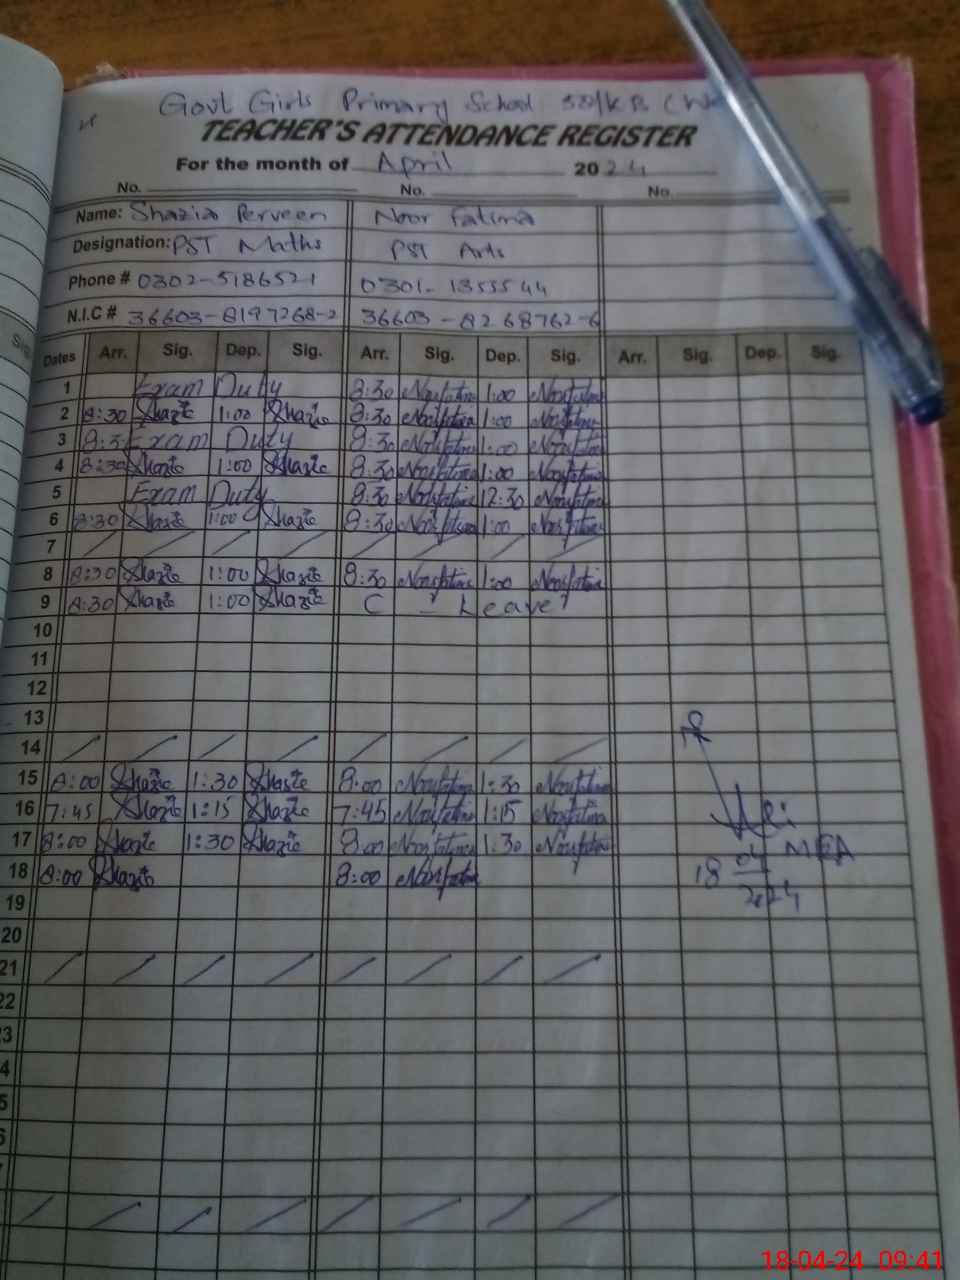 Govt Girls Primary School 58/KB (W
TEACHER'S ATTENDANCE REGISTER
For the month of April 2024
No. No. No.
Name: Shazia Perveen Noor Fatima
Designation: PST Maths PST Arts
Phone # 0302-5186521 0301-1355544
N.I.C # 36603-8197268-2 36603-8268762-6
Dates Arr. Sig. Dep. Sig. Arr. Sig. Dep. Sig. Arr. Sig. Dep. Sig.
1 Exam Duty 8:30 Noorfatima 1:00 Noorfatima
2 8:30 Shazia 1:00 Shazia 8:30 Noorfatima 1:00 Noorfatima
3 8:3 Exam Duty 8:30 Noorfatima 1:00 Noorfatima
4 8:30 Shazia 1:00 Shazia 8:30 Noorfatima 1:00 Noorfatima
5 Exam Duty 8:30 Noorfatima 12:30 Noorfatima
6 8:30 Shazia 1:00 Shazia 8:30 Noorfatima 1:00 Noorfatima
7 / / / / / / / /
8 8:30 Shazia 1:00 Shazia 8:30 Noorfatima 1:00 Noorfatima
9 8:30 Shazia 1:00 Shazia C - Leave
10
11
12
13
14 / / / / / / / /
15 8:00 Shazia 1:30 Shazia 8:00 Noorfatima 1:30 Noorfatima
16 7:45 Shazia 1:15 Shazia 7:45 Noorfatima 1:15 Noorfatima
17 8:00 Shazia 1:30 Shazia 8:00 Noorfatima 1:30 Noorfatima
MEA
18 8:00 Shazia 8:00 Noorfatima
18 04
2024
19
20
21 / / / / / / / /
22
3
4
5
6
/ / / / / / / /
18-04-24 09:41